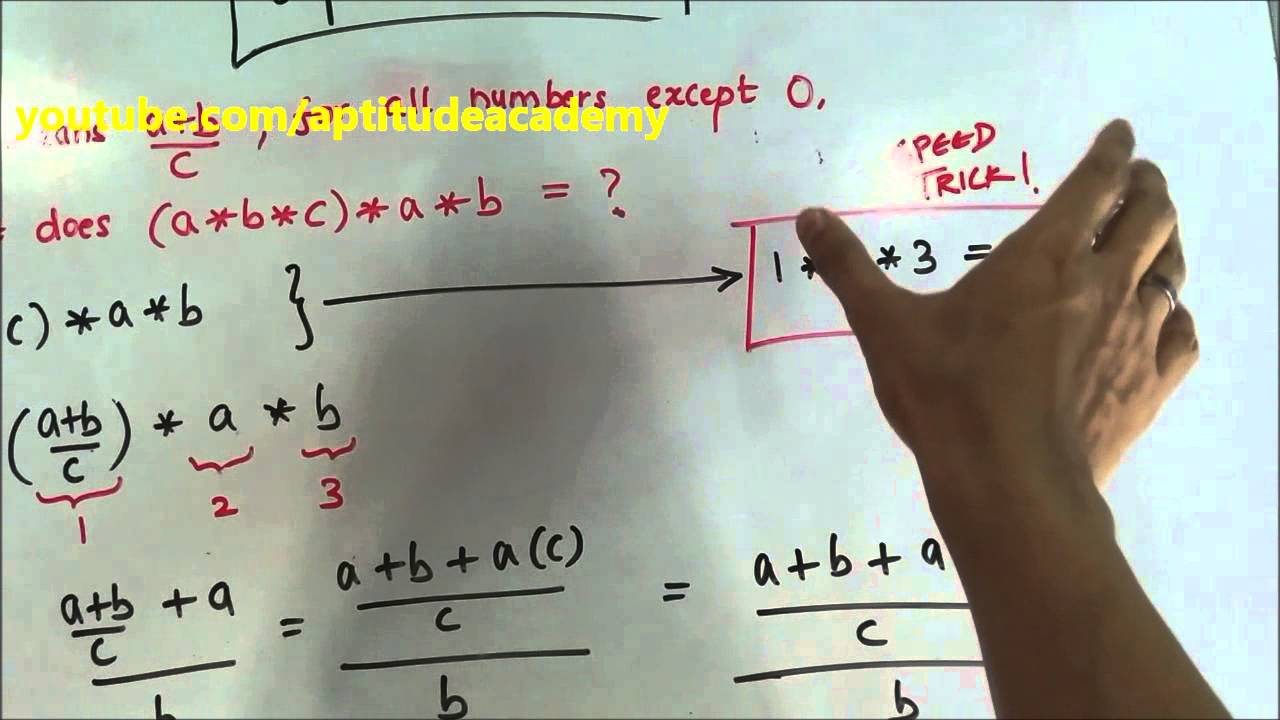 youtube.com/aptitudeacademy
a+b/c, all numbers except 0.
does (a*b*c)*a*b = ?
TRICK!
c)*a*b } → 1* *3 =
(a+b/c) * a * b
1 2 3
a+b/c + a = a+b+a(c)/c = a+b+a/c
b b b